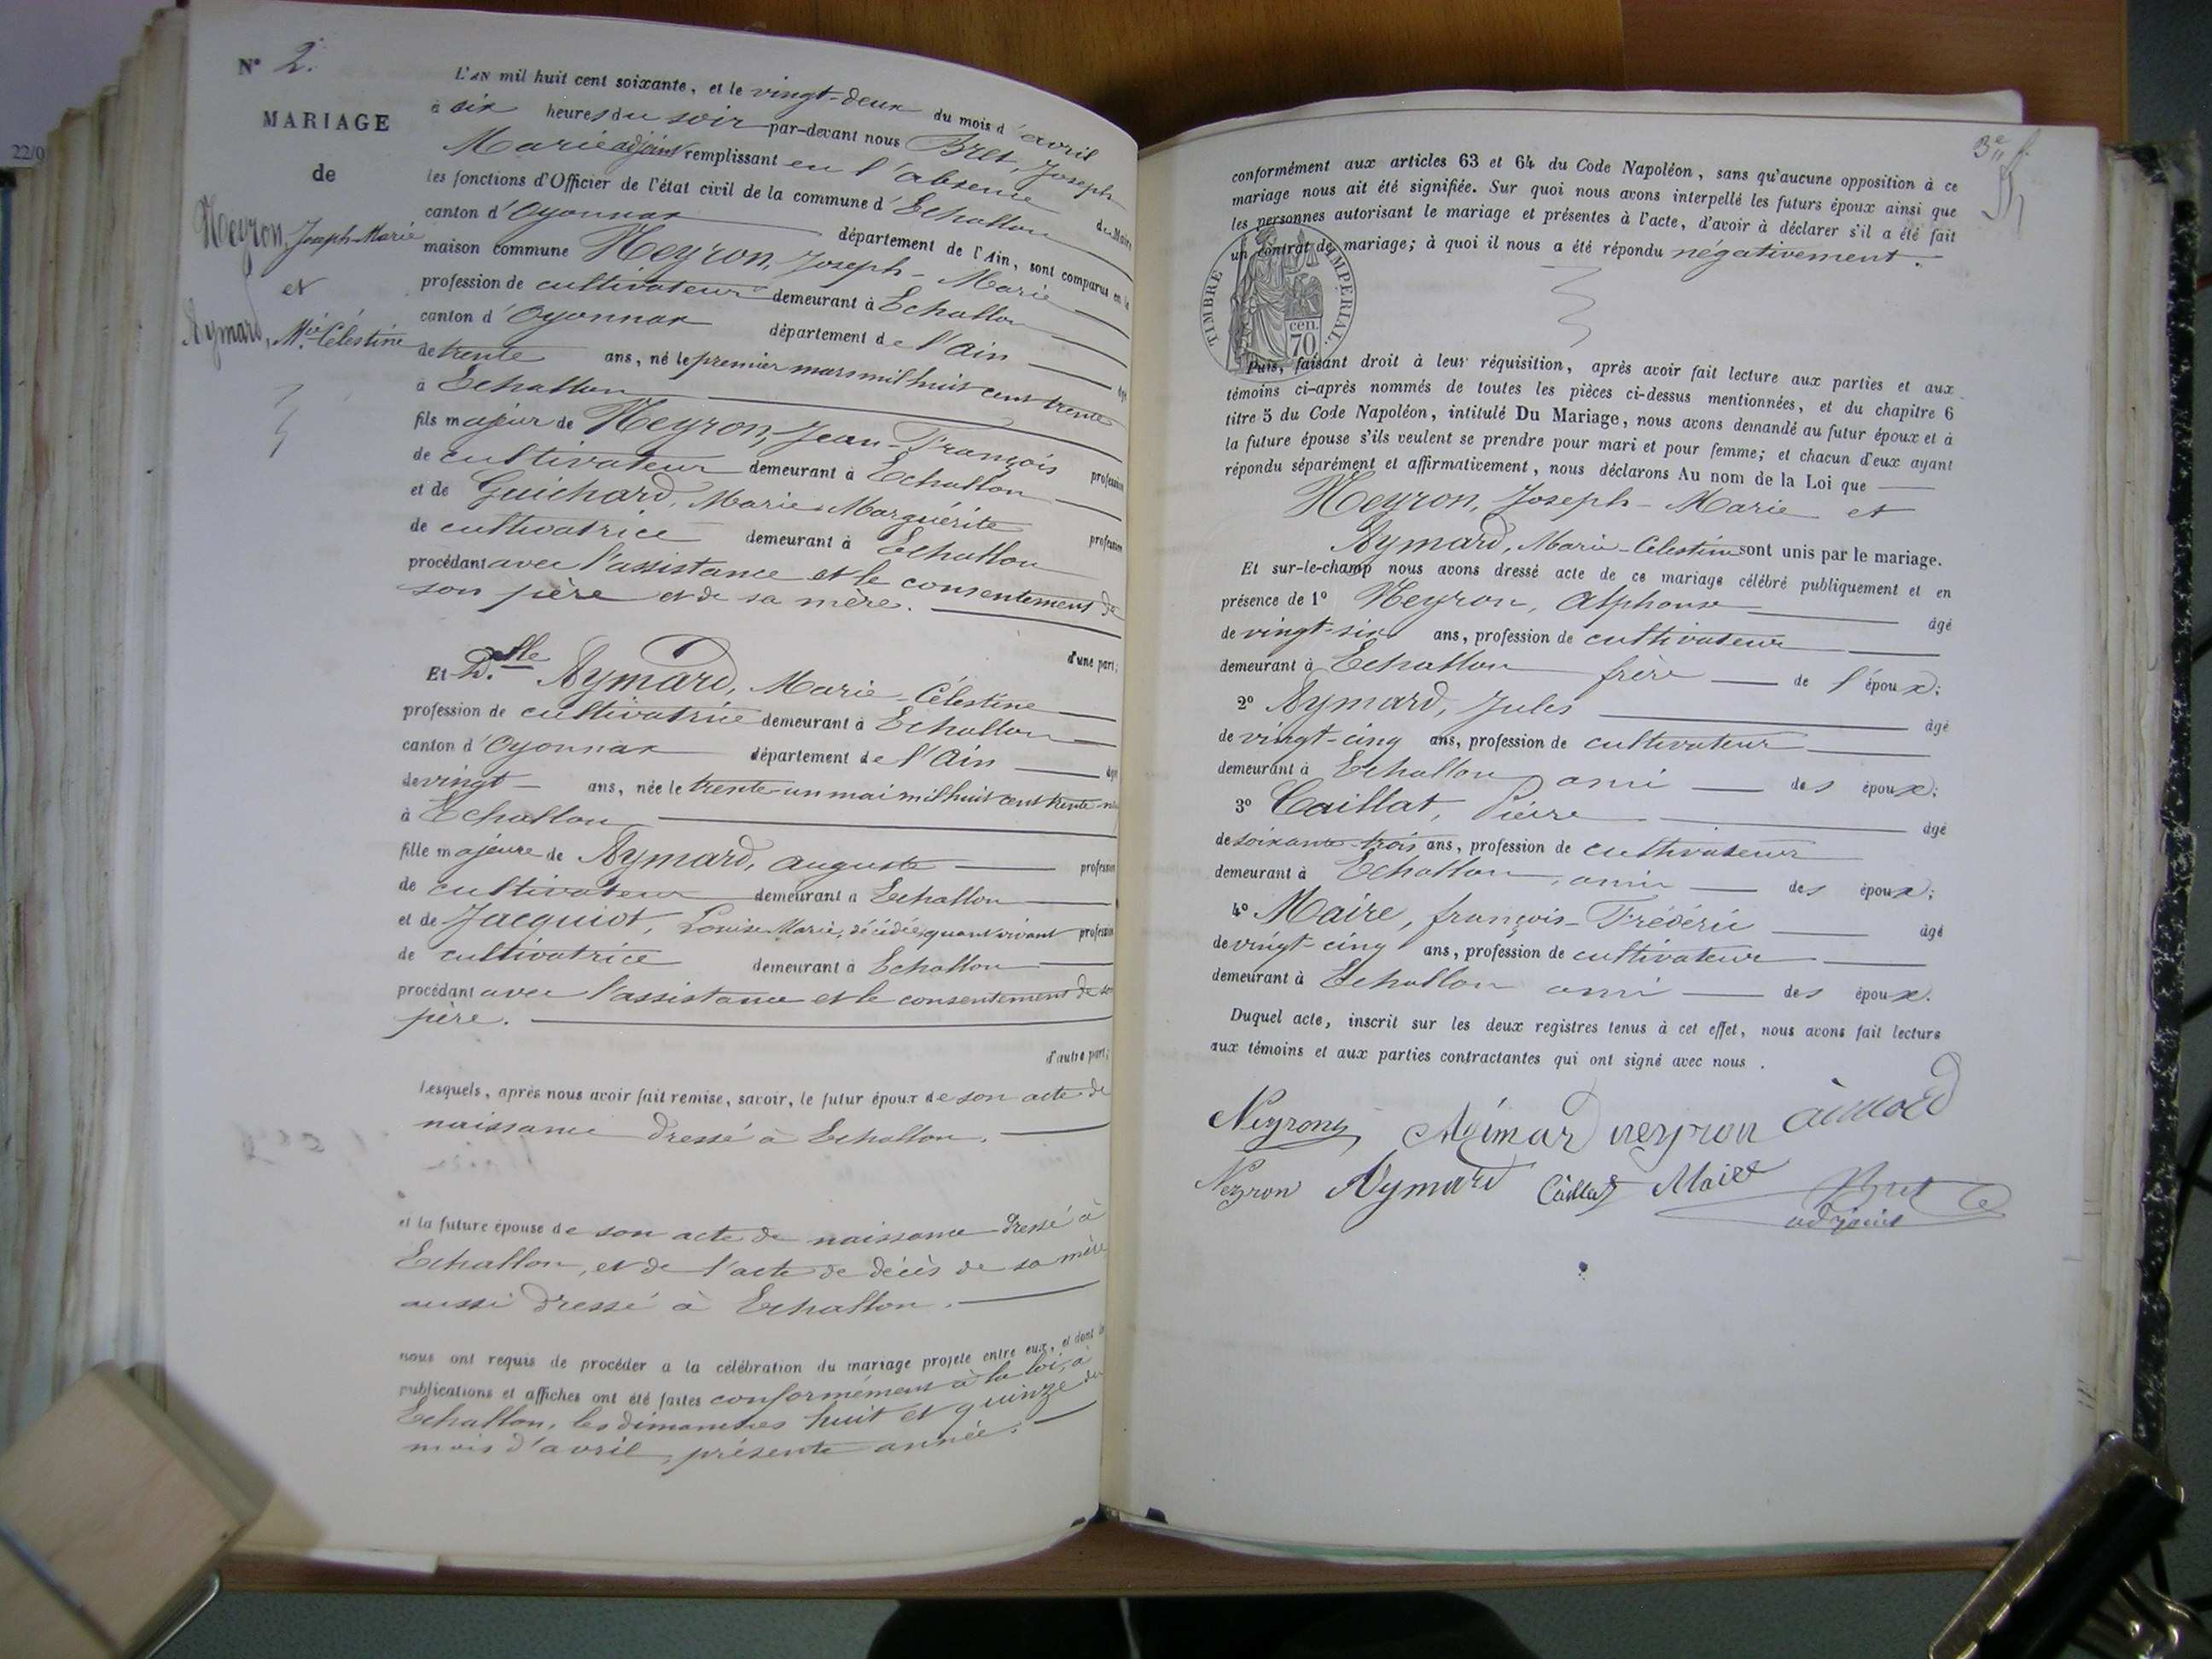 22/0
N° 2.
MARIAGE
de
Neyron, Joseph-Marie
et
Aymard, Mie-Célestine
L'AN mil huit cent soixante, et le vingt-deux du mois d'avril
à six heures du soir par-devant nous Bret, Joseph-
Marie adjoint remplissant en l'absence du Maire
les fonctions d'Officier de l'état civil de la commune d'Echallon
canton d'Oyonnax département de l'Ain, sont comparus en la
maison commune Neyron, Joseph-Marie
profession de cultivateur demeurant à Echallon
canton d'Oyonnax département de l'Ain âgé
de trente ans, né le premier mars mil huit cent trente
à Echallon
fils majeur de Neyron, Jean-François profession
de cultivateur demeurant à Echallon
et de Guichard, Marie Marguérite profession
de cultivatrice demeurant à Echallon
procédant avec l'assistance et le consentement de
son père et de sa mère.
d'une part;
Et D.lle Aymard, Marie-Célestine
profession de cultivatrice demeurant à Echallon
canton d'Oyonnax département de l'Ain âgé
de vingt ans, née le trente-un mai mil huit cent trente-
à Echallon
fille majeure de Aymard, Auguste profession
de cultivateur demeurant à Echallon
et de Jacquiot, Louise Marie, décédée, quant vivant profession
de cultivatrice demeurant à Echallon
procédant avec l'assistance et le consentement de son
père.
d'autre part;
Lesquels, après nous avoir fait remise, savoir, le futur époux de son acte de
naissance dressé à Echallon.
et la future épouse de son acte de naissance dressé à
Echallon, et de l'acte de décès de sa mère
aussi dressé à Echallon.
nous ont requis de procéder à la célébration du mariage projeté entre eux, et dont les
publications et affiches ont été faites conformément à la loi, à
Echallon, les dimanches huit et quinze du
mois d'avril, présente année.
3e f.
conformément aux articles 63 et 64 du Code Napoléon, sans qu'aucune opposition à ce
mariage nous ait été signifiée. Sur quoi nous avons interpellé les futurs époux ainsi que
les personnes autorisant le mariage et présentes à l'acte, d'avoir à déclarer s'il a été fait
un contrat de mariage; à quoi il nous a été répondu négativement.
TIMBRE IMPÉRIAL.
70 cen.
Puis, faisant droit à leur réquisition, après avoir fait lecture aux parties et aux
témoins ci-après nommés de toutes les pièces ci-dessus mentionnées, et du chapitre 6
titre 5 du Code Napoléon, intitulé Du Mariage, nous avons demandé au futur époux et à
la future épouse s'ils veulent se prendre pour mari et pour femme; et chacun d'eux ayant
répondu séparément et affirmativement, nous déclarons Au nom de la Loi que
Neyron, Joseph-Marie et
Aymard, Marie-Célestine sont unis par le mariage.
Et sur-le-champ nous avons dressé acte de ce mariage célébré publiquement et en
présence de 1° Neyron, Alphonse âgé
de vingt-six ans, profession de cultivateur
demeurant à Echallon frère de l'époux;
2° Aymard, Jules âgé
de vingt-cinq ans, profession de cultivateur
demeurant à Echallon ami des époux;
3° Caillat, Pierre âgé
de soixante-trois ans, profession de cultivateur
demeurant à Echallon, ami des époux;
4° Maire, françois-Frédéric âgé
de vingt-cinq ans, profession de cultivateur
demeurant à Echallon ami des époux.
Duquel acte, inscrit sur les deux registres tenus à cet effet, nous avons fait lecture
aux témoins et aux parties contractantes qui ont signé avec nous.
Neyron Aÿmard neyron aimard
Neyron Aymard Caillat Maire Bret
adjoint